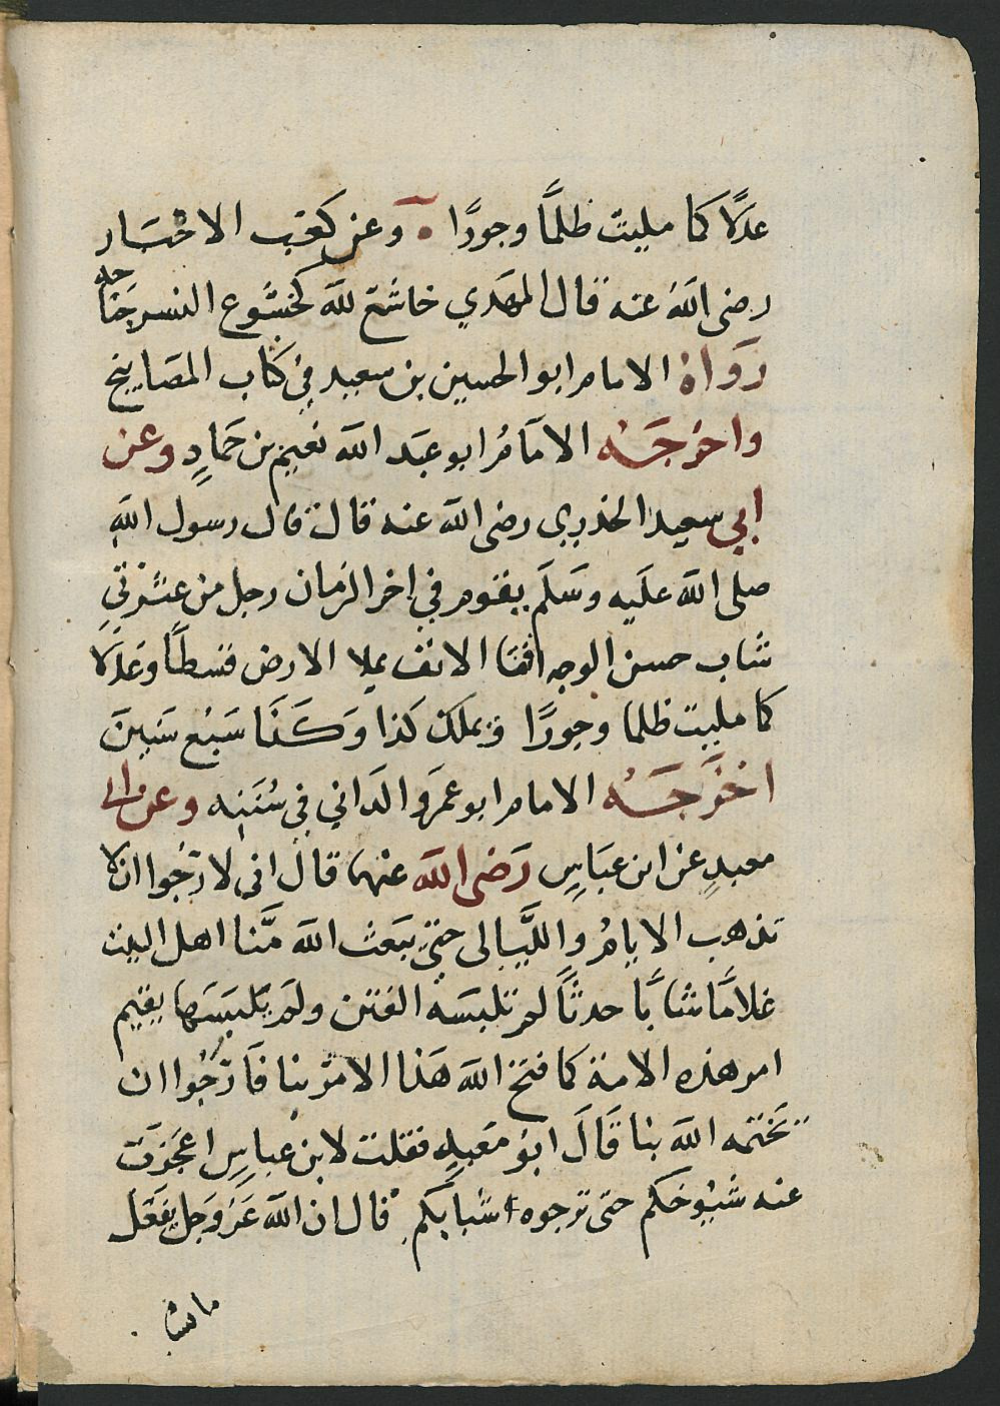 عدلًا كما مليت ظلمًا وجورًا ۰ وعن كعب الاحبار
رضى الله عنه قال المهدي خاشع لله كخشوع النسر جناحه
رَوَاهُ الامام ابو الحسين بن سعيد في كتاب المصابيح
واخرجَه الامَامُ ابو عبَد الله نعيم بن حمادٍ وعن
ابي سعيد الخدري رضى الله عنه قال قال رسول الله
صلى الله علَيه وسَلَم يقوم في اخر الزمان رجل من عترتي
شاب حسن الوجه اقنا الانف يملا الارض قسطًا وعدلًا
كما مليت ظلما وجورًا ويملك كذا وَكَذَا سَبْع سَنِينَ
اخْرَجَهُ الامام ابو عمَرو الدَاني في سُنَنِه وعن ابى
معبدٍ عن ابن عبَاسٍ رَضى الله عنهما قال انى لا رْجُوا ان لا
تذهب الايامُ والليَالى حتى يبَعث الله منَّا اهل البيت
غلامًا شابًا حدثًا لم تلبسَه الفتن ولم يلبَسَها يقيم
امر هذه الامة كما فتح الله هَذا الامْر بنا فَارْجُوا ان
يَختمه الله بنا قَالَ ابو مَعبدٍ فقلت لابن عباسٍ اعجَزَت
عنه شُيُوخكم حتى ترجوه شبابكم قال ان الله عَزَ وَجل يفَعَل
ما يشا